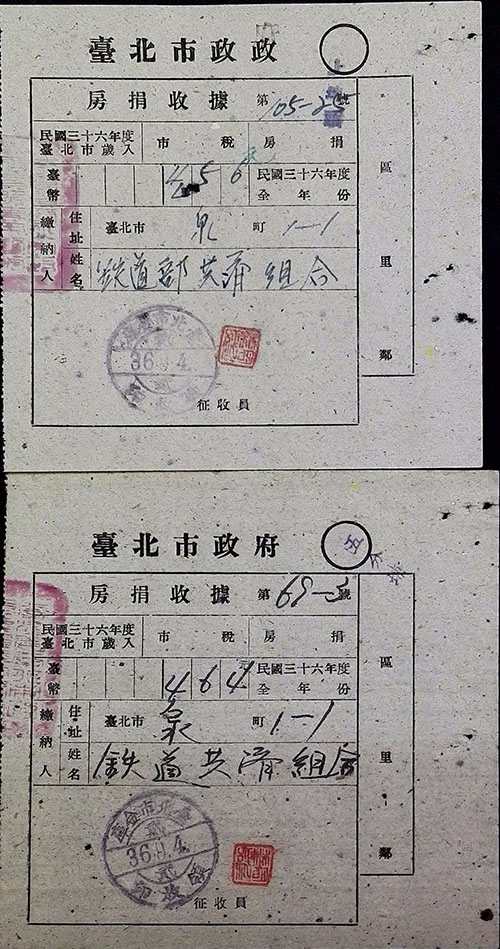 臺北市政政
房捐收據 第105-25號
民國三十六年度
臺北市歲入
市稅 房捐
臺幣 456
民國三十六年度
全年份
繳納人
住址 臺北市 泉 町 1-1
姓名 鉄道部共済組合
36.9.4.
征收員
區
里
鄰
臺北市政府
房捐收據 第69-3號
民國三十六年度
臺北市歲入
市稅 房捐
臺幣 464
民國三十六年度
全年份
繳納人
住址 臺北市 泉 町 1-1
姓名 鉄道共済組合
臺北市金庫
36.9.4.
收
征收員
區
里
鄰